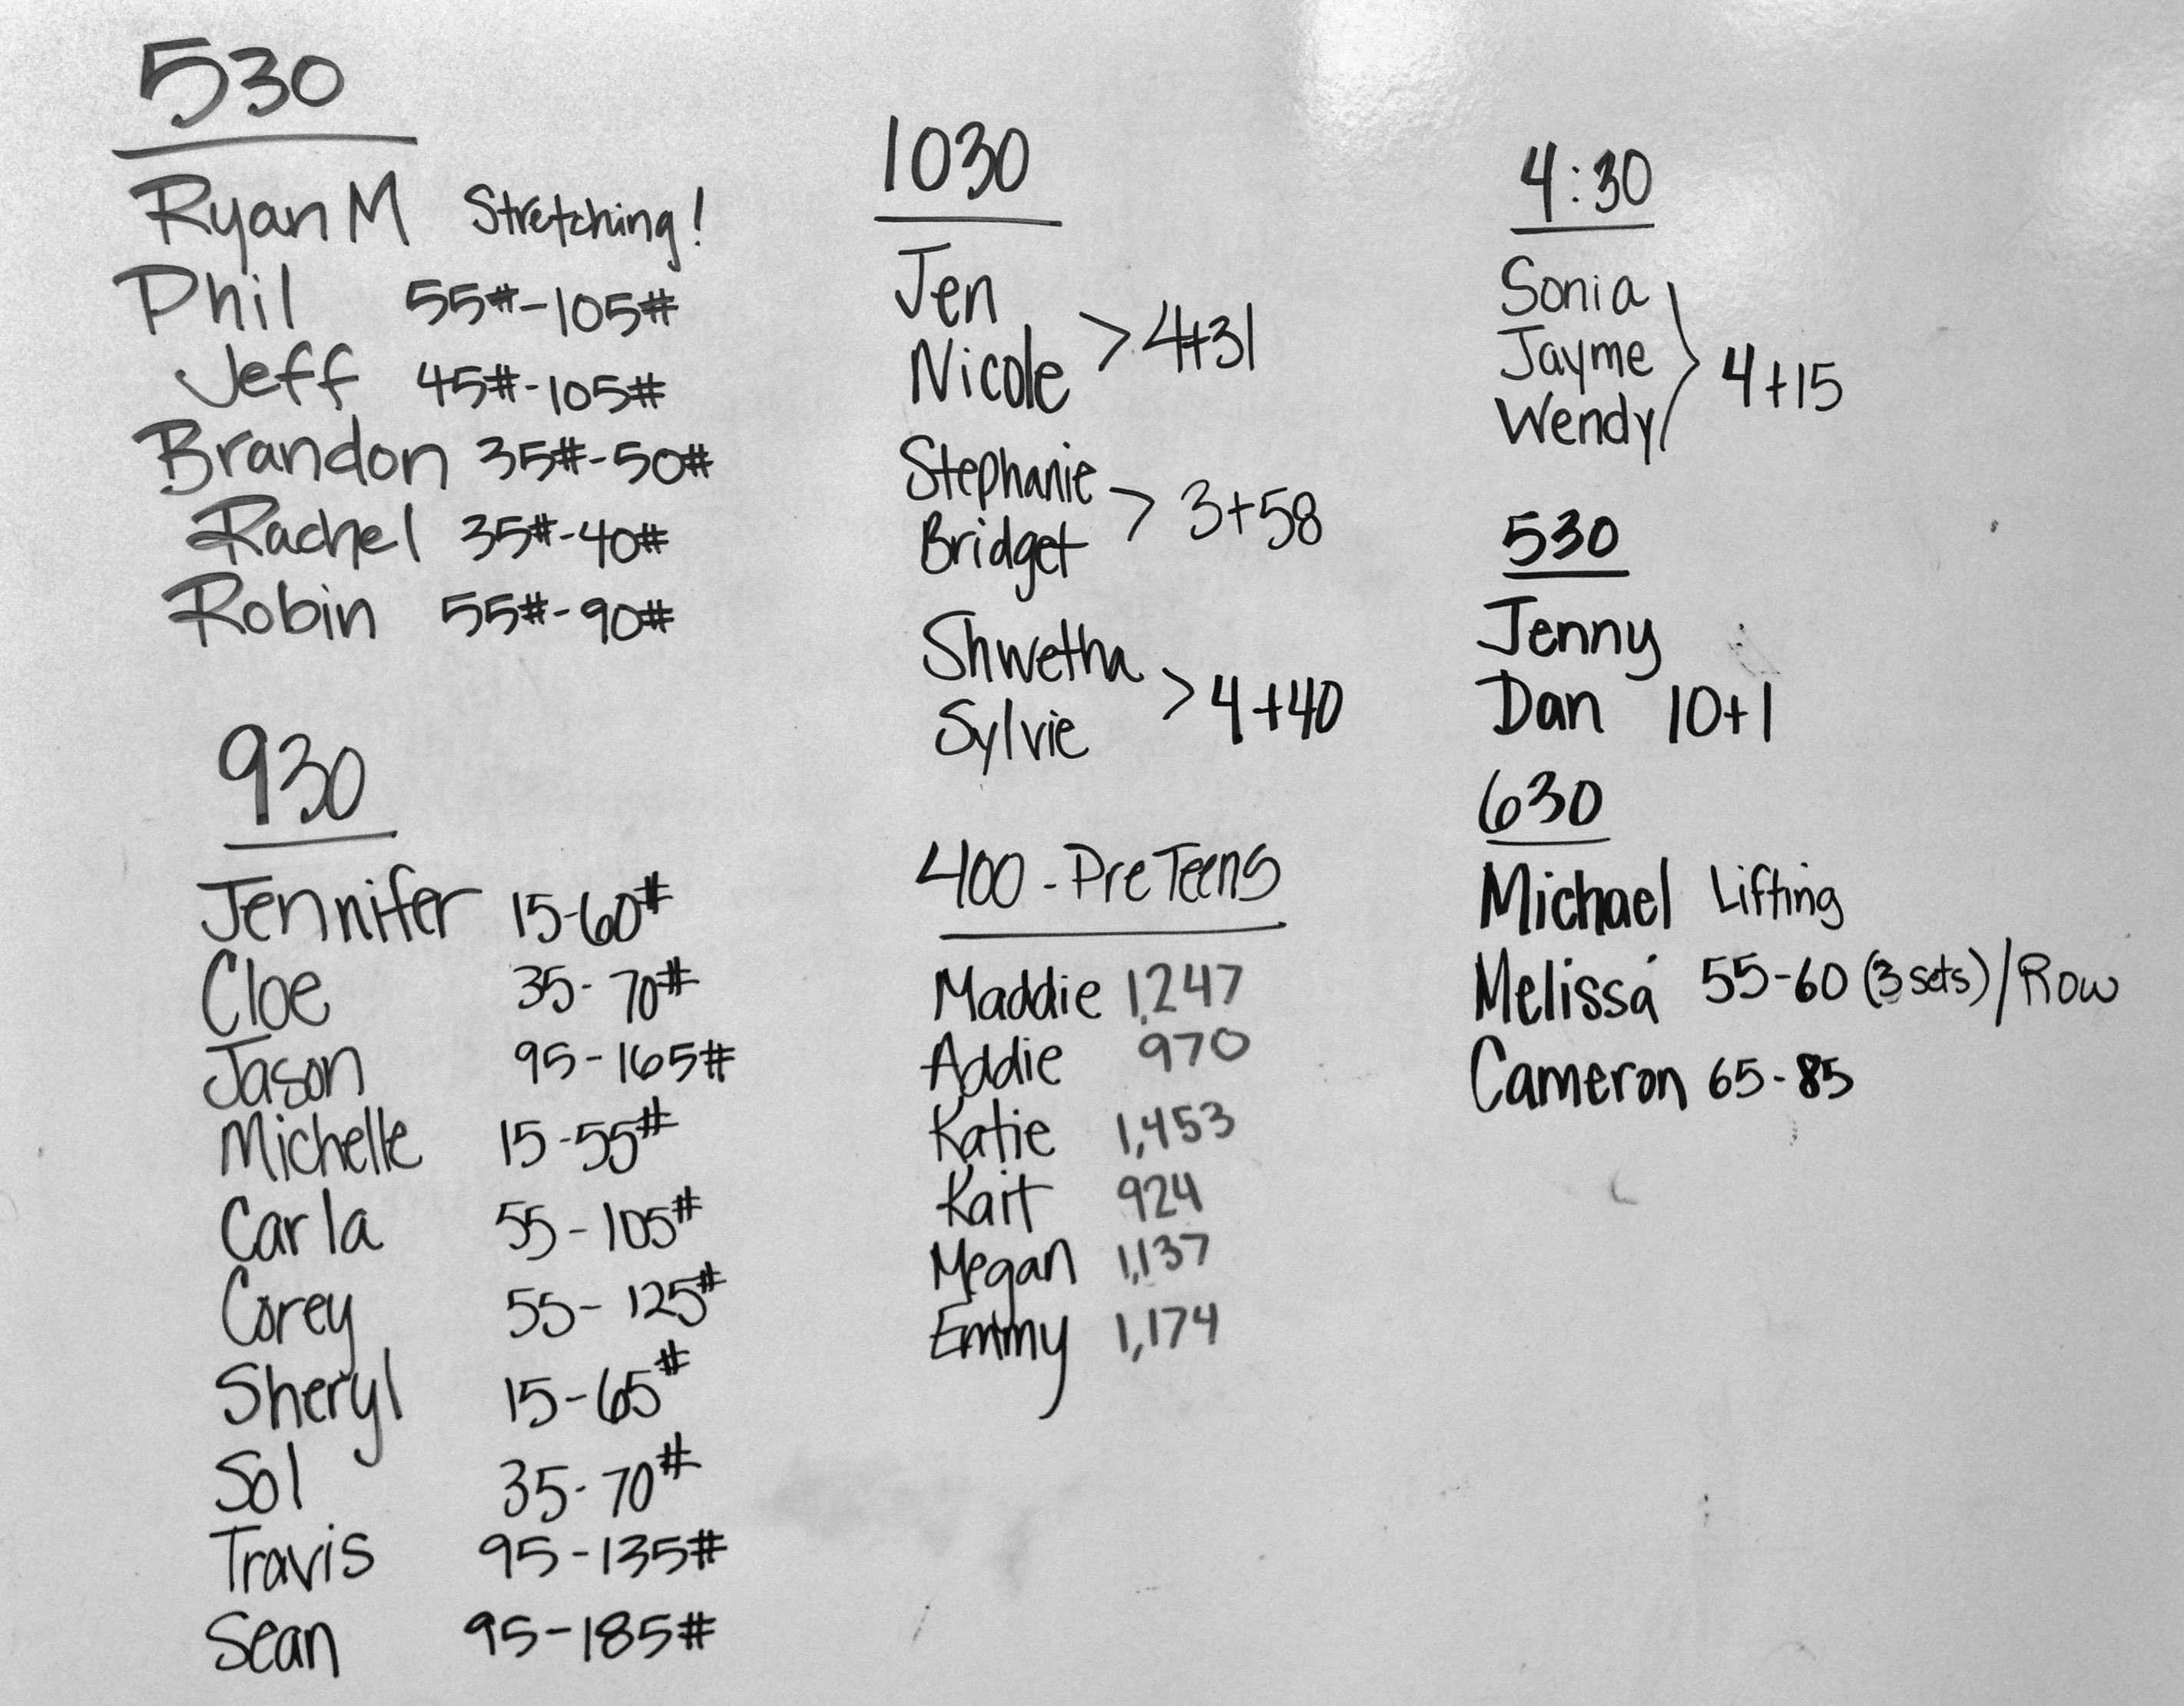 530
Ryan M Stretching!
Phil 55#-105#
Jeff 45#-105#
Brandon 35#-50#
Rachel 35#-40#
Robin 55#-90#
930
Jennifer 15-60#
Cloe 35-70#
Jason 95-165#
Michelle 15-55#
Carla 55-105#
Corey 55-125#
Sheryl 15-65#
Sol 35-70#
Travis 95-135#
Sean 95-185#
1030
Jen
Nicole > 4+31
Stephanie
Bridget > 3+58
Shwetha
Sylvie > 4+40
400 - Pre Teens
Maddie 1,247
Addie 970
Katie 1,453
Kait 924
Megan 1,137
Emmy 1,174
4:30
Sonia
Jayme } 4+15
Wendy
530
Jenny
Dan 10+1
630
Michael Lifting
Melissa 55-60 (3 sets)/Row
Cameron 65-85